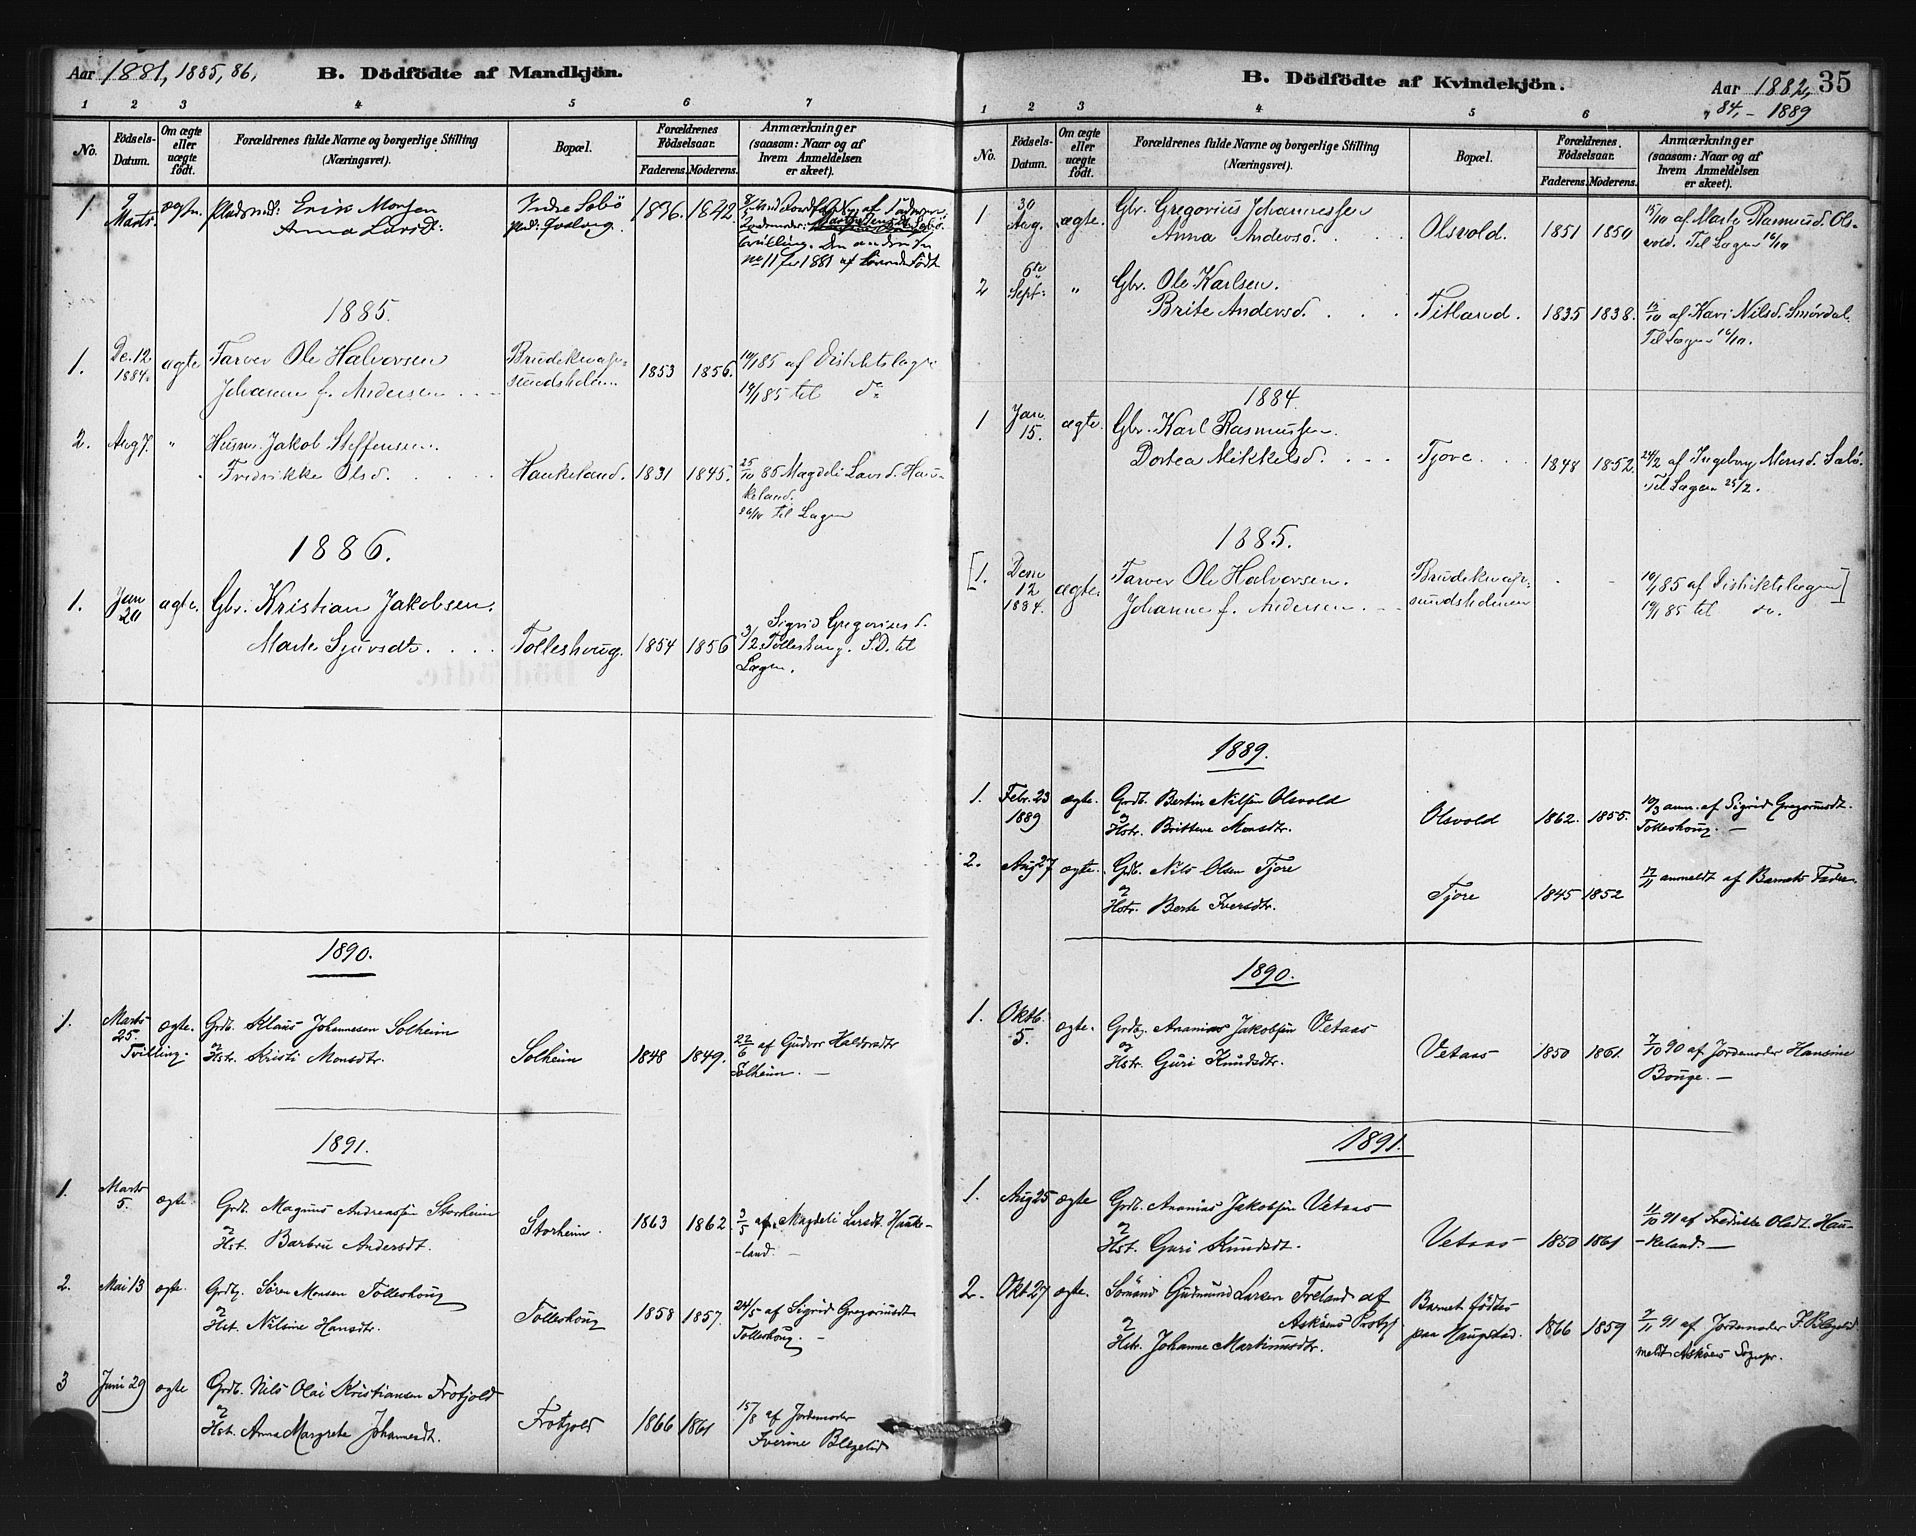 Aar 1881, 1885, 86, B. Dödfödte af Mandkjön.
1 2 3 4 5 6 7
No. Födsels-Datum. Om ægte eller uægte født. Forældrenes fulde Navne og borgerlige Stilling (Næringsvei). Bopæl. Forældrenes Födselsaar. Faderens. Moderens. Anmærkninger (saasom: Naar og af hvem Anmeldelsen er skeet).
1 9 Marts ægte. Pladsmd: Erik Monsen Indre Sebö 1896. 1842
Anna Larsd:
Tvilling. Den anden se
no 11 for 1881 af levendefödt
1885.
1. De. 12. 1884. ægte Farver Ole Halvorsen
Johanne f. Andersen Brudeknap-
sundsholm. 1853 1856. 10/1 85 af Distriktslægen
19/1 85 til do
2. Aug 7. " Husm. Jakob Steffensen.
" Fredrikke Olsd. Haukeland. 1831 1845. 25/10 85 Magdeli Larsd. Hau-
keland.
26/10 til Lægen
1886.
1. Jan 20 ægte. Gbr. Kristian Jakobsen.
Marte Sjursdtr. Tolleshoug. 1854 1856 3/2 Sigrid Gregoriusd.
Tolleshoug. S.D. til
Lægen.
1890.
1. Marts 25. Tvilling. ægte. Grdb. Klaus Johannesen Solheim
og Hstr. Kristi Monsdtr. Solheim 1848 1849. 22/6 af Gudvor Haldorsdtr
Solheim. —
1891.
1. Marts 5. ægte Grdb. Magnus Andreassen Storheim
og Hst. Barbru Andersdt. Storheim. 1863 1862 3/5 af Magdeli Larsdt. Hauke-
-land. —
2. Mai 13 ægte. Grdbg. Sören Monsen Tolleshoug
og Hst. Nilsine Hansdtr. Tolleshoug 1858 1857. 24/5 af Sigrid Gregoriusdt
Tolleshoug. —
3 Juni 29 ægte Grdb. Nils Olai Kristiansen Frotjold
og Hst. Anna Margrete Johannesdt. Frotjold 1866 1861 15/8 af Jordemoder
Iverine Blegelid
B. Dödfödte af Kvindekjön. Aar 1882, 35
84, – 1889
1 2 3 4 5 6
No. Födsels-Datum. Om ægte eller uægte født. Forældrenes fulde Navne og borgerlige Stilling (Næringsvei). Bopæl. Forældrenes Födselsaar. Faderens. Moderens. Anmærkninger (saasom: Naar og af hvem Anmeldelsen er skeet).
1 30 Aug. ægte. Gbr. Gregorius Johannessen
Anna Andersd. Olsvold. 1851 1850 15/10 af Marte Rasmusd. Ols-
vold. Til Lægen 16/10
2 6te Sept: " Gbr. Ole Karlsen.
Brite Andersd. Titland. 1835 1838. 15/10 af Kari Nilsd. Smördal.
Til Lægen 16/10.
1884.
1 Jan. 15. ægte. Gbr. Karl Rasmussen.
Dortea Mikkelsd. Tjore. 1848 1852. 24/2 af Ingeborg Monsd. Sæbö.
Til Lægen 25/2.
1885.
[1. Decm 12 1884. ægte. Farver Ole Halvorsen.
Johanne f. Andersen. Brudeknap-
sundsholmen 10/1 85 af Distriktslægen]
19/1 85 til do.
1889.
1. Febr. 23 1889 ægte. Grdb. Bertin Nilsen Olsvold
og Hstr. Britteve Monsdtr. Olsvold 1862. 1855. 10/3 anm. af Sigrid Gregoriusdt.
Tolleshoug. —
2. Aug 27 ægte. Grdb. Nils Olsen Tjore
og Hstr. Berte Iversdtr. Tjore 1845 1852 17/11 anmeldt af Barnets Fader.
1890.
1. Oktb. 5. ægte. Grdbg. Ananias Jakobsen Vetaas
og Hstr. Guri Knudsdtr. Vetaas 1850 1861. 7/10 90 af Jordemoder Hansine
Bouge. —
1891.
1. Aug 25 ægte Grdb. Ananias Jakobsen Vetaas
og Hst. Guri Knudsdt. Vetaas 1850 1861 11/10 91 af Fredrikke Olsdt. Hau-
-keland. —
2. Okt. 27 ægte. Sömand Gudmund Larsen Freland af
Asköens Prstgj
og Hstr. Johanne Martinusdtr. Barnet födtes
paa Haugstad. 1866 1859 7/11 91 af Jordemoder I. Blegelid
meldt Asköens Sognepr.